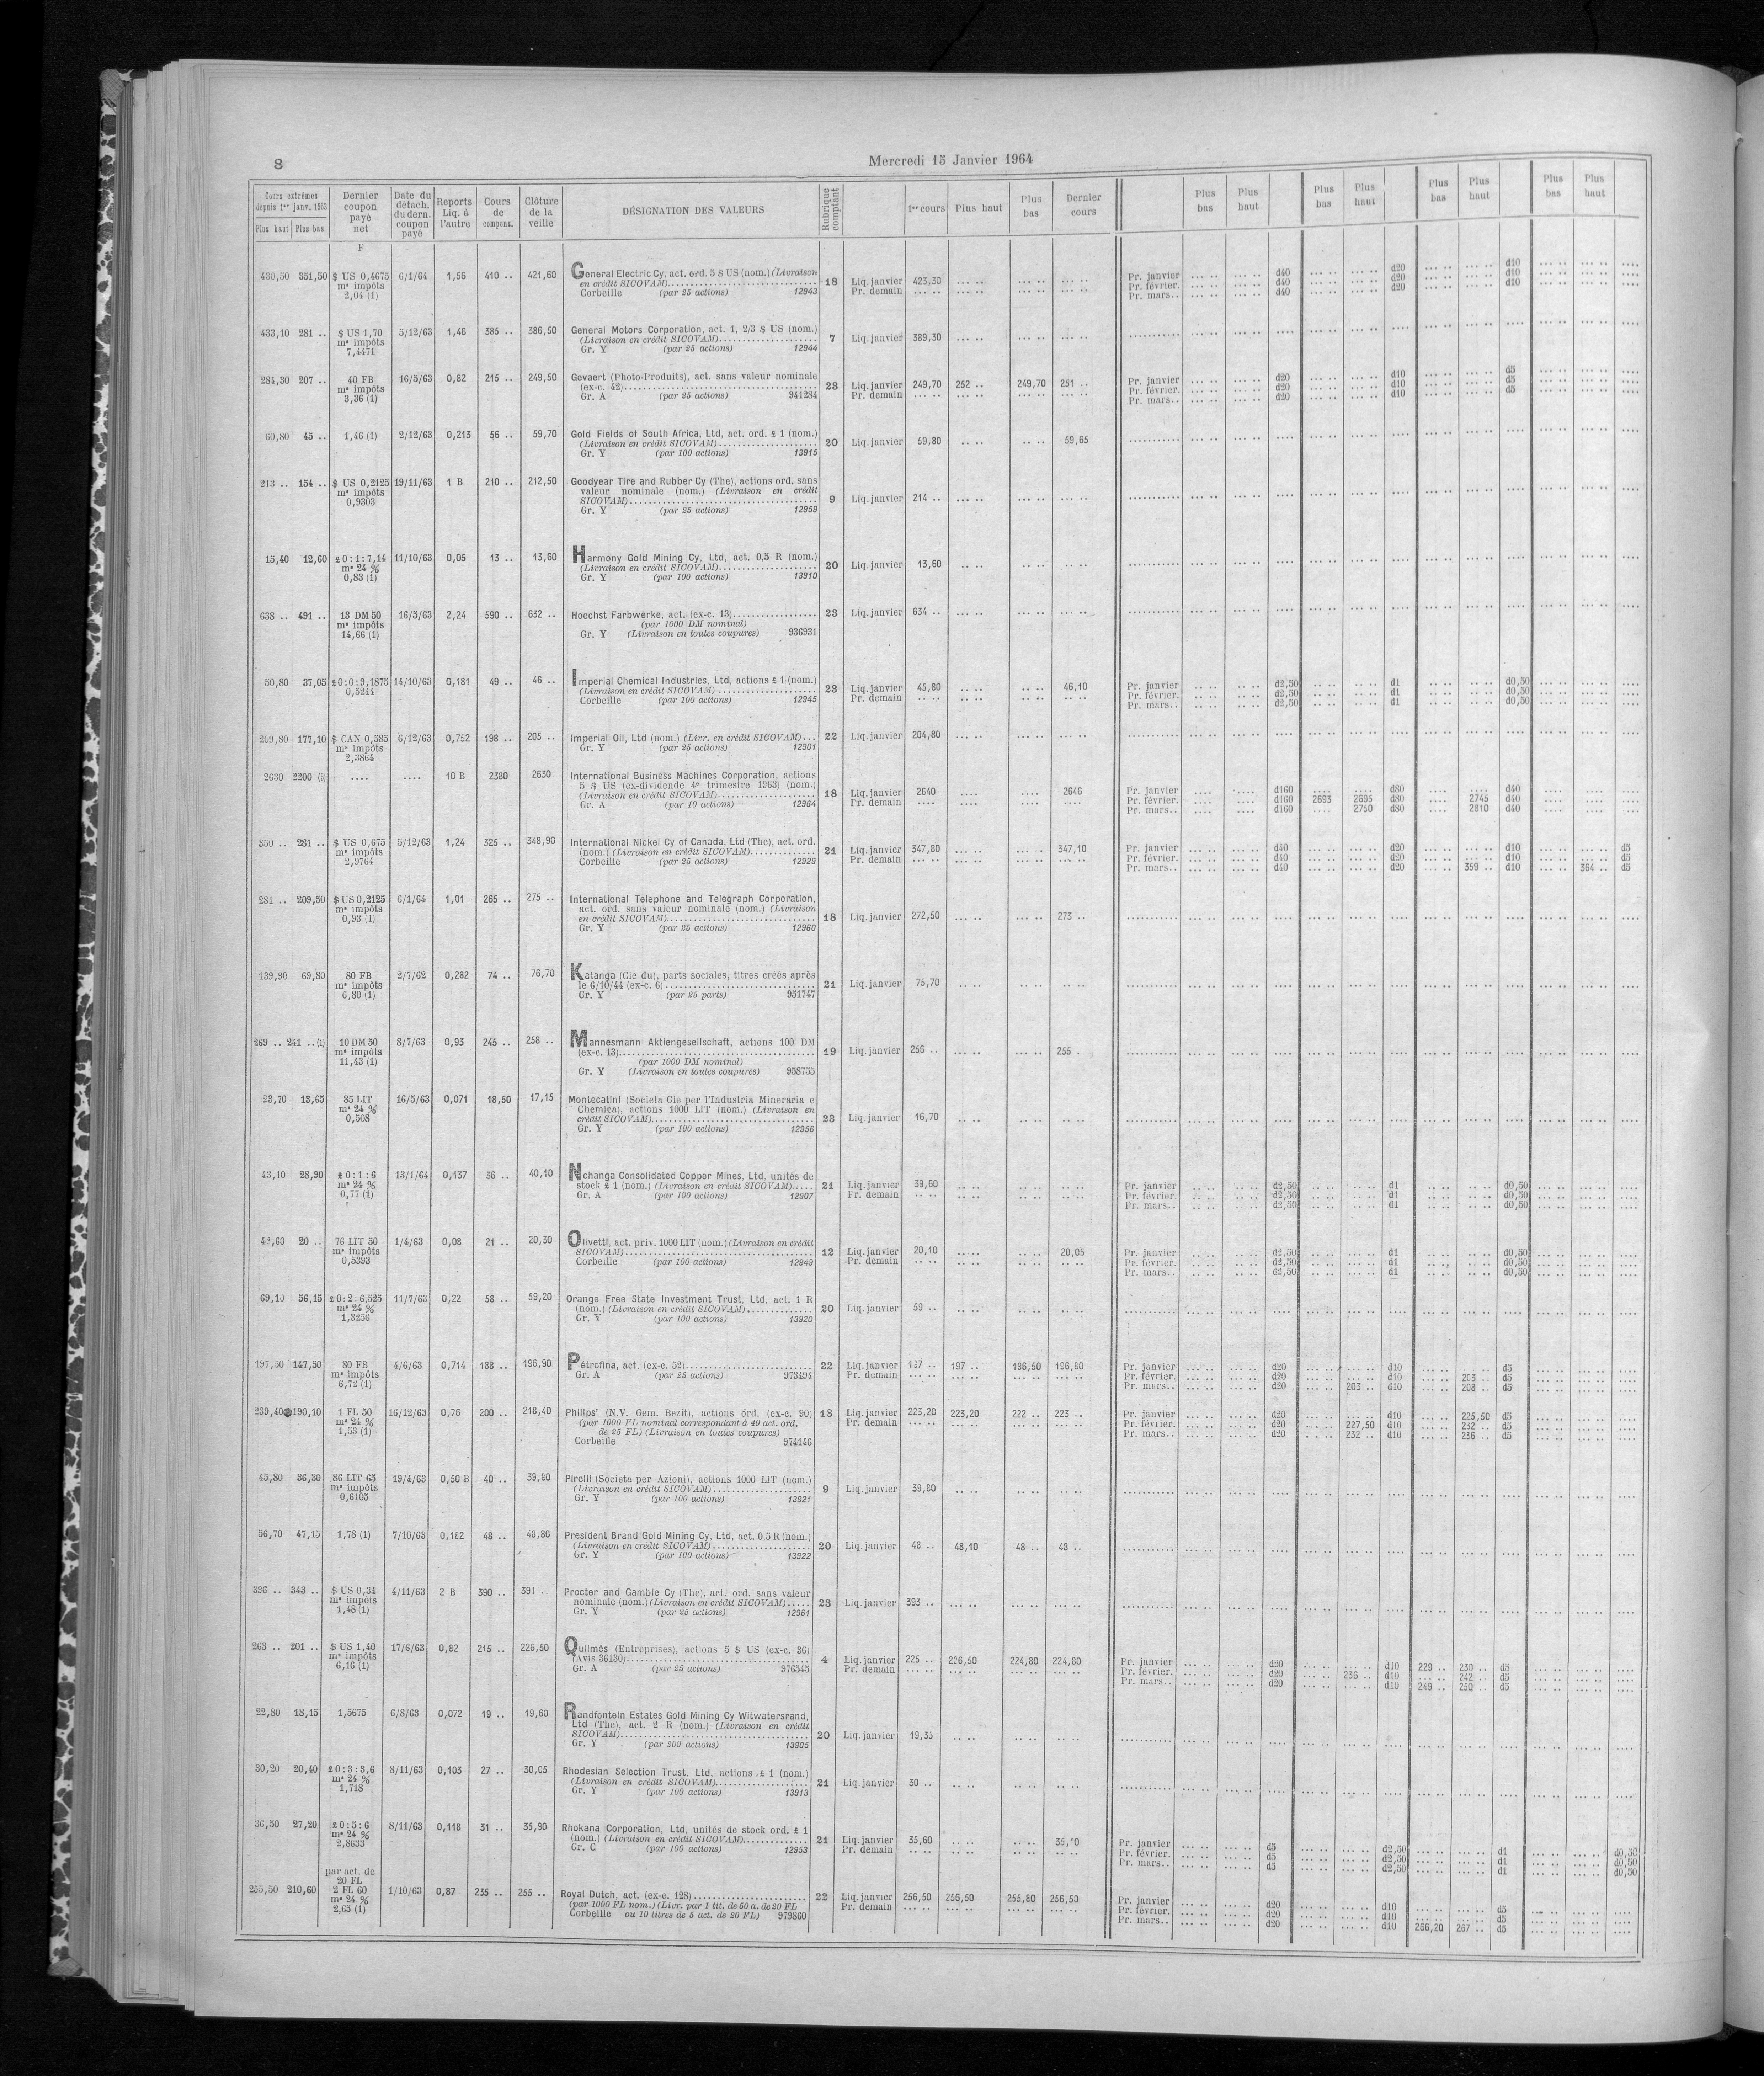 8
Mercredi 15 Janvier 1964
Cours extrêmes depuis 1er janv. 1963 Plus haut Plus bas | Dernier coupon payé net | Date du détach. du dern. coupon payé | Reports Liq. à l'autre | Cours de compens. | Clôture de la veille | DÉSIGNATION DES VALEURS | Rubrique comptant | 1er cours | Plus haut | Plus bas | Dernier cours | Plus bas | Plus haut | Plus bas | Plus haut | Plus bas | Plus haut | Plus bas | Plus haut
F
430,50 351,50 $ US 0,4675 6/1/64 1,56 410 .. 421,60 General Electric Cy, act. ord. 5 $ US (nom.) (Livraison
mˢ impôts en crédit SICOVAM) 18 Liq. janvier 423,50 Pr. janvier d40 d20 d10
2,04 (1) Corbeille (par 25 actions) 12943 Pr. demain Pr. février. d40 d20 d10
Pr. mars.. d40 d20 d10
433,10 281 .. $ US 1,70 5/12/63 1,46 385 .. 386,50 General Motors Corporation, act. 1, 2/3 $ US (nom.)
mˢ impôts (Livraison en crédit SICOVAM) 7 Liq. janvier 389,30
7,4471 Gr. Y (par 25 actions) 12944
284,30 207 .. 40 FB 16/5/63 0,82 215 .. 249,50 Gevaert (Photo-Produits), act. sans valeur nominale
mˢ impôts (ex-c. 42) 23 Liq. janvier 249,70 252 .. 249,70 251 .. Pr. janvier d20 d10 d5
3,36 (1) Gr. A (par 25 actions) 941284 Pr. demain Pr. février. d20 d10 d5
Pr. mars.. d20 d10 d5
60,80 45 .. 1,46 (1) 2/12/63 0,213 56 .. 59,70 Gold Fields of South Africa, Ltd, act. ord. £ 1 (nom.)
(Livraison en crédit SICOVAM) 20 Liq. janvier 59,80 59,65
Gr. Y (par 100 actions) 13915
213 .. 154 .. $ US 0,2125 19/11/63 1 B 210 .. 212,50 Goodyear Tire and Rubber Cy (The), actions ord. sans
mˢ impôts valeur nominale (nom.) (Livraison en crédit
0,9303 SICOVAM) 9 Liq. janvier 214 ..
Gr. Y (par 25 actions) 12959
15,40 12,60 £ 0:1:7,14 11/10/63 0,05 13 .. 13,60 Harmony Gold Mining Cy, Ltd, act. 0,5 R (nom.)
mˢ 24 % (Livraison en crédit SICOVAM) 20 Liq. janvier 13,60
0,83 (1) Gr. Y (par 100 actions) 13910
638 .. 491 .. 13 DM 50 16/5/63 2,24 590 .. 632 .. Hoechst Farbwerke, act. (ex-c. 13) 23 Liq. janvier 634 ..
mˢ impôts (par 1000 DM nominal)
14,66 (1) Gr. Y (Livraison en toutes coupures) 936931
50,80 37,05 £ 0:0:9,1875 14/10/63 0,181 49 .. 46 .. Imperial Chemical Industries, Ltd, actions £ 1 (nom.)
0,5244 (Livraison en crédit SICOVAM) 23 Liq. janvier 45,80 46,10 Pr. janvier d2,50 d1 d0,50
Corbeille (par 100 actions) 12945 Pr. demain Pr. février. d2,50 d1 d0,50
Pr. mars.. d2,50 d1 d0,50
209,80 177,10 $ CAN 0,585 6/12/63 0,752 198 .. 205 .. Imperial Oil, Ltd (nom.) (Livr. en crédit SICOVAM) 22 Liq. janvier 204,80
mˢ impôts Gr. Y (par 25 actions) 12901
2,3864
2630 2200 (5) .... .... 10 B 2380 2630 International Business Machines Corporation, actions
5 $ US (ex-dividende 4ᵉ trimestre 1963) (nom.)
(Livraison en crédit SICOVAM) 18 Liq. janvier 2640 2646 Pr. janvier d160 d80 d40
Gr. A (par 10 actions) 12964 Pr. demain Pr. février. d160 2693 2695 d80 2745 d40
Pr. mars.. d160 2750 d80 2810 d40
350 .. 281 .. $ US 0,675 5/12/63 1,24 325 .. 348,90 International Nickel Cy of Canada, Ltd (The), act. ord.
mˢ impôts (nom.) (Livraison en crédit SICOVAM) 21 Liq. janvier 347,80 347,10 Pr. janvier d40 d20 d10 d5
2,9764 Corbeille (par 25 actions) 12929 Pr. demain Pr. février. d40 d20 d10 d5
Pr. mars.. d40 d20 359 .. d10 364 .. d5
281 .. 209,50 $ US 0,2125 6/1/64 1,01 265 .. 275 .. International Telephone and Telegraph Corporation,
mˢ impôts act. ord. sans valeur nominale (nom.) (Livraison
0,93 (1) en crédit SICOVAM) 18 Liq. janvier 272,50 273 ..
Gr. Y (par 25 actions) 12960
139,90 69,80 80 FB 2/7/62 0,282 74 .. 76,70 Katanga (Cie du), parts sociales, titres créés après
mˢ impôts le 6/10/44 (ex-c. 6) 21 Liq. janvier 75,70
6,80 (1) Gr. Y (par 25 parts) 951747
269 .. 241 .. (1) 10 DM 50 8/7/63 0,93 245 .. 258 .. Mannesmann Aktiengesellschaft, actions 100 DM
mˢ impôts (ex-c. 13) 19 Liq. janvier 256 .. 255 .
11,43 (1) (par 1000 DM nominal)
Gr. Y (Livraison en toutes coupures) 958755
23,70 13,65 85 LIT 16/5/63 0,071 18,50 17,15 Montecatini (Societa Gle per l'Industria Mineraria e
mˢ 24 % Chemica), actions 1000 LIT (nom.) (Livraison en
0,508 crédit SICOVAM) 23 Liq. janvier 16,70
Gr. Y (par 100 actions) 12956
43,10 28,90 £ 0:1:6 13/1/64 0,137 36 .. 40,10 Nchanga Consolidated Copper Mines, Ltd, unités de
mˢ 24 % stock £ 1 (nom.) (Livraison en crédit SICOVAM) 21 Liq. janvier 39,60 Pr. janvier d2,50 d1 d0,50
0,77 (1) Gr. A (par 100 actions) 12907 Pr. demain Pr. février. d2,50 d1 d0,50
Pr. mars.. d2,50 d1 d0,50
42,60 20 .. 76 LIT 50 1/4/63 0,08 21 .. 20,30 Olivetti, act. priv. 1000 LIT (nom.) (Livraison en crédit
mˢ impôts SICOVAM) 12 Liq. janvier 20,10 20,05 Pr. janvier d2,50 d1 d0,50
0,5393 Corbeille (par 100 actions) 12949 Pr. demain Pr. février. d2,50 d1 d0,50
Pr. mars.. d2,50 d1 d0,50
69,10 56,15 £ 0:2:6,525 11/7/63 0,22 58 .. 59,20 Orange Free State Investment Trust, Ltd, act. 1 R
mˢ 24 % (nom.) (Livraison en crédit SICOVAM) 20 Liq. janvier 59 ..
1,3256 Gr. Y (par 100 actions) 13920
197,50 147,50 80 FB 4/6/63 0,714 188 .. 196,90 Pétrofina, act. (ex-c. 52) 22 Liq. janvier 197 .. 197 .. 196,50 196,80 Pr. janvier d20 d10 d5
mˢ impôts Gr. A (par 25 actions) 973494 Pr. demain Pr. février. d20 d10 203 .. d5
6,72 (1) Pr. mars.. d20 203 .. d10 208 .. d5
239,40 190,10 1 FL 50 16/12/63 0,76 200 .. 218,40 Philips' (N.V. Gem. Bezit), actions ord. (ex-c. 90) 18 Liq. janvier 223,20 223,20 222 .. 223 .. Pr. janvier d20 d10 225,50 d5
mˢ 24 % (par 1000 FL nominal correspondant à 40 act. ord. Pr. demain Pr. février. d20 227,50 d10 232 .. d5
1,53 (1) de 25 FL) (Livraison en toutes coupures) Pr. mars.. d20 232 .. d10 236 .. d5
Corbeille 974146
45,80 36,30 86 LIT 65 19/4/63 0,50 B 40 .. 39,80 Pirelli (Societa per Azioni), actions 1000 LIT (nom.)
mˢ impôts (Livraison en crédit SICOVAM) 9 Liq. janvier 39,80
0,6105 Gr. Y (par 100 actions) 13921
56,70 47,15 1,78 (1) 7/10/63 0,182 48 .. 48,80 President Brand Gold Mining Cy, Ltd, act. 0,5 R (nom.)
(Livraison en crédit SICOVAM) 20 Liq. janvier 48 .. 48,10 48 .. 48 ..
Gr. Y (par 100 actions) 13922
396 .. 343 .. $ US 0,34 4/11/63 2 B 390 .. 391 .. Procter and Gamble Cy (The), act. ord. sans valeur
mˢ impôts nominale (nom.) (Livraison en crédit SICOVAM) 23 Liq. janvier 393 ..
1,48 (1) Gr. Y (par 25 actions) 12961
263 .. 201 .. $ US 1,40 17/6/63 0,82 215 .. 226,50 Quilmès (Entreprises), actions 5 $ US (ex-c. 36)
mˢ impôts (Avis 36130) 4 Liq. janvier 225 .. 226,50 224,80 224,80 Pr. janvier d20 d10 229 .. 230 .. d5
6,16 (1) Gr. A (par 25 actions) 976345 Pr. demain Pr. février. d20 236 .. d10 242 .. d5
Pr. mars.. d20 d10 249 .. 250 .. d5
22,80 18,15 1,5675 6/8/63 0,072 19 .. 19,60 Randfontein Estates Gold Mining Cy Witwatersrand,
Ltd (The), act. 2 R (nom.) (Livraison en crédit
SICOVAM) 20 Liq. janvier 19,35
Gr. Y (par 200 actions) 13905
30,20 20,40 £ 0:3:3,6 8/11/63 0,103 27 .. 30,05 Rhodesian Selection Trust, Ltd, actions £ 1 (nom.)
mˢ 24 % (Livraison en crédit SICOVAM) 21 Liq. janvier 30 ..
1,718 Gr. Y (par 100 actions) 13913
36,50 27,20 £ 0:5:6 8/11/63 0,118 31 .. 35,90 Rhokana Corporation, Ltd, unités de stock ord. £ 1
mˢ 24 % (nom.) (Livraison en crédit SICOVAM) 21 Liq. janvier 35,60 Pr. janvier d5 d2,50 d1 d0,50
2,8633 Gr. C (par 100 actions) 12953 Pr. demain Pr. février. d5 d2,50 d1 d0,50
Pr. mars.. d5 d2,50 d1 d0,50
par act. de
20 FL
255,50 210,60 2 FL 60 1/10/63 0,87 235 .. 255 .. Royal Dutch, act. (ex-c. 128) 22 Liq. janvier 256,50 256,50 255,80 256,50 Pr. janvier d20 d10 d5
mˢ 24 % (par 1000 FL nom.) (Livr. par 1 tit. de 50 a. de 20 FL Pr. demain Pr. février. d20 d10 d5
2,65 (1) Corbeille ou 10 titres de 5 act. de 20 FL) 979860 Pr. mars.. d20 d10 266,20 267 .. d5